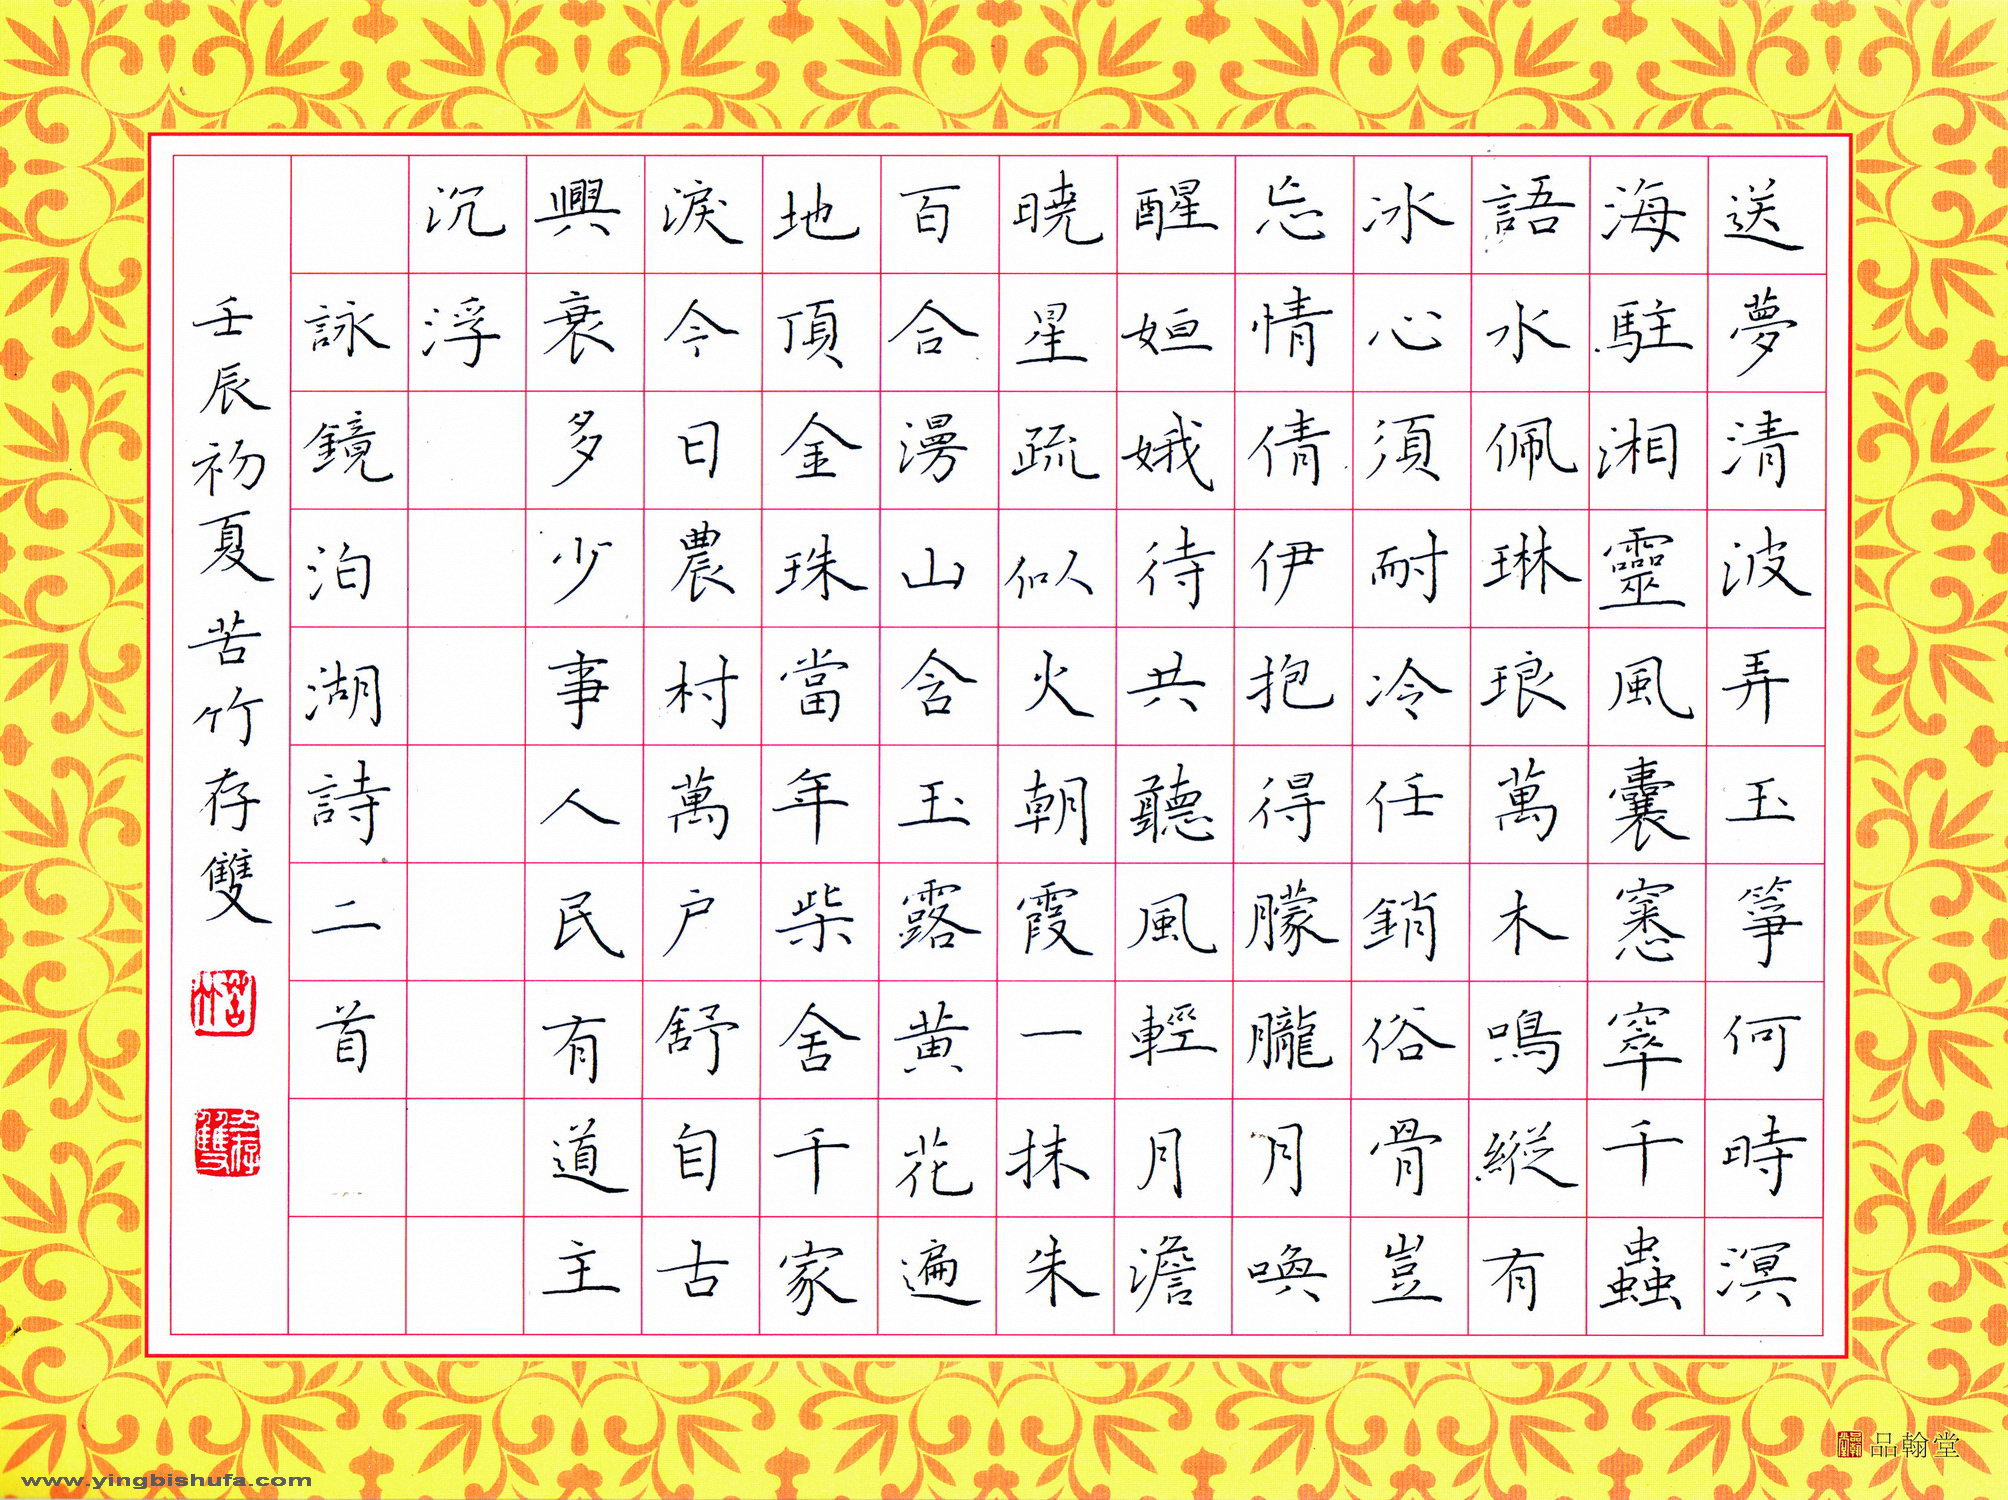 送夢清波弄玉箏何時溟
海駐湘靈風囊窸窣千蟲
語水佩琳琅萬木鳴縱有
冰心須耐冷任銷俗骨豈
忘情倩伊抱得朦朧月喚
醒姮娥待共聽風輕月澹
曉星疏似火朝霞一抹朱
百合漫山含玉露黃花遍
地頂金珠當年柴舍千家
淚今日農村萬戶舒自古
興衰多少事人民有道主
沉浮
詠鏡泊湖詩二首
壬辰初夏苦竹存雙
苦竹
存雙
品翰堂
www.yingbishufa.com